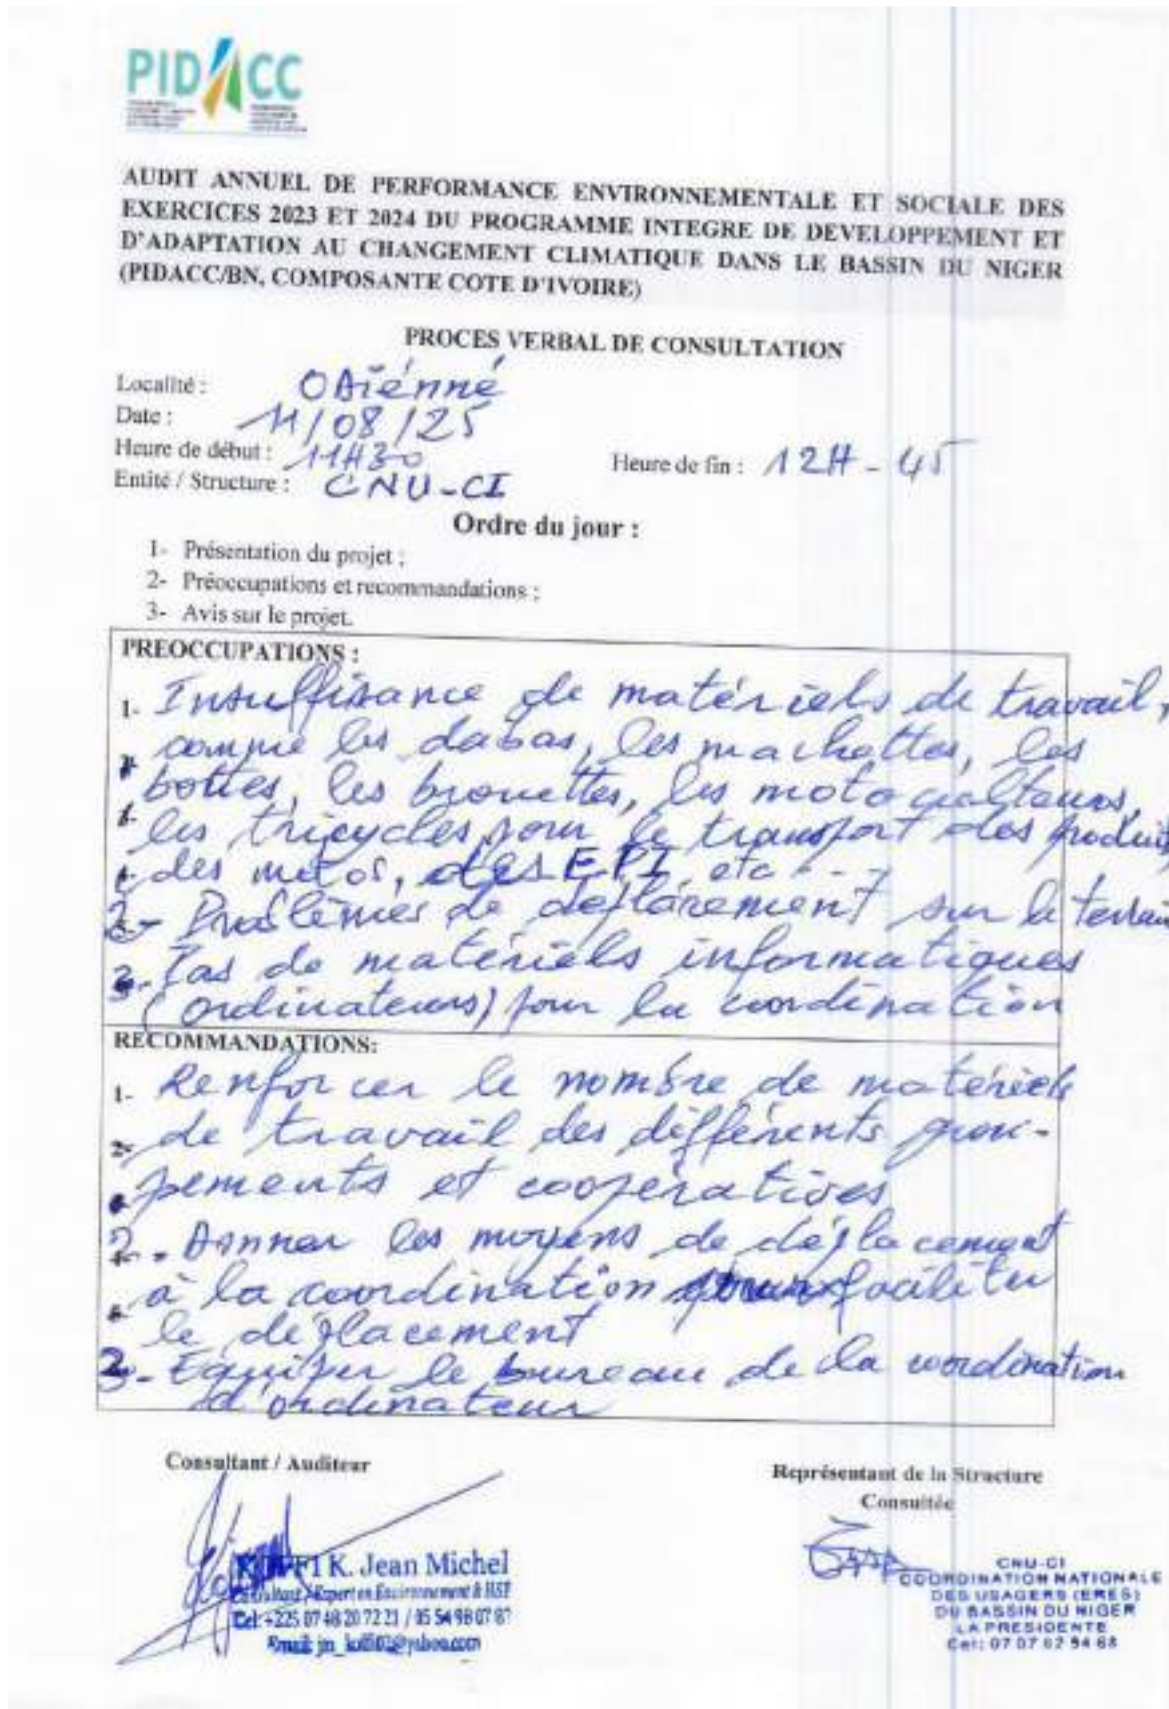 PIDACC
AUDIT ANNUEL DE PERFORMANCE ENVIRONNEMENTALE ET SOCIALE DES
EXERCICES 2023 ET 2024 DU PROGRAMME INTEGRE DE DEVELOPPEMENT ET
D'ADAPTATION AU CHANGEMENT CLIMATIQUE DANS LE BASSIN DU NIGER
(PIDACC/BN, COMPOSANTE COTE D'IVOIRE)
PROCES VERBAL DE CONSULTATION
Localité : Odiénné
Date : 11/08/25
Heure de début : 11H30 Heure de fin : 12H-45
Entité / Structure : CNU-CI
Ordre du jour :
1- Présentation du projet ;
2- Préoccupations et recommandations ;
3- Avis sur le projet.
PREOCCUPATIONS :
1- Insuffisance de matériels de travail,
comme les dabas, les machettes, les
bottes, les brouettes, les motoculteurs,
les tricycles pour le transport des produits,
des motos, des EPI, etc...
2- Problèmes de déplacement sur le terrain
3- Pas de matériels informatiques
(ordinateurs) pour la coordination
RECOMMANDATIONS:
1- Renforcer le nombre de matériels
de travail des différents grou-
pements et coopératives
2- Donner les moyens de déplacement
à la coordination pour faciliter
le déplacement
3- Equiper le bureau de la coordination
d'ordinateur
Consultant / Auditeur
Représentant de la Structure
Consultée
KOFFI K. Jean Michel
Consultant / Expert en Environnement & HSE
Cel: +225 07 48 20 72 21 / 05 54 98 07 87
Email: jm_koffi02@yahoo.com
CNU-CI
COORDINATION NATIONALE
DES USAGERS (ERES)
DU BASSIN DU NIGER
LA PRESIDENTE
Cel: 07 07 62 54 68